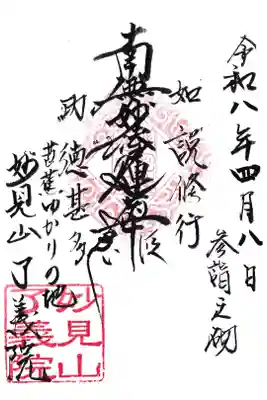 令和八年四月八日
参詣之砌
如説修行
南無妙法蓮華経
功徳甚多
芭蕉ゆかりの地
妙見山了義院
妙見山
了義院